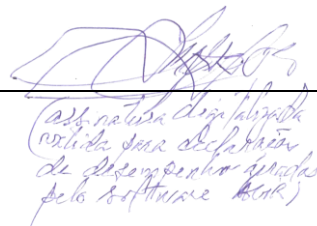 (assinatura digitalizada
válida para declarações
de desempenho geradas
pelo software